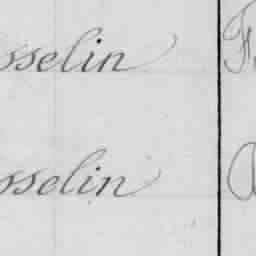 sselin F
sselin